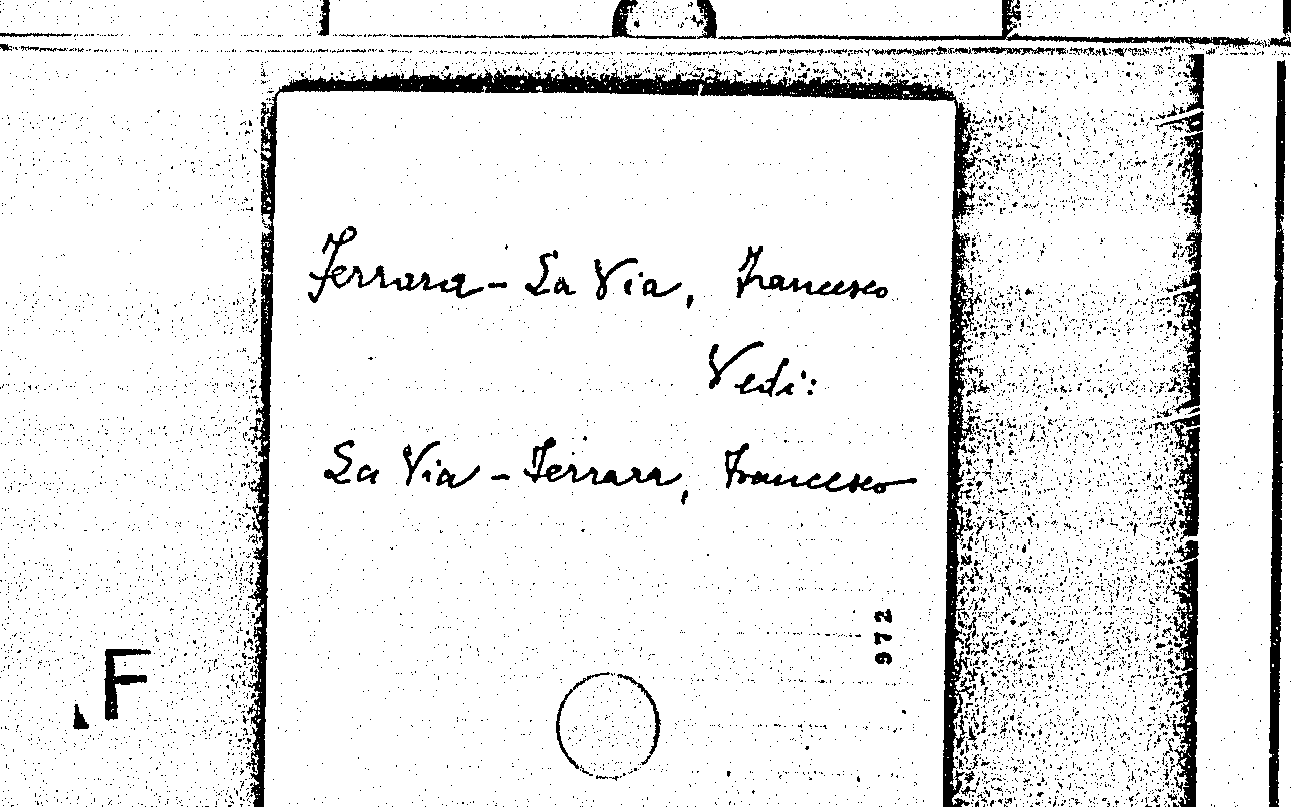 Ferrara - La Via, Francesco
Vedi:
La Via - Ferrara, Francesco
972
F